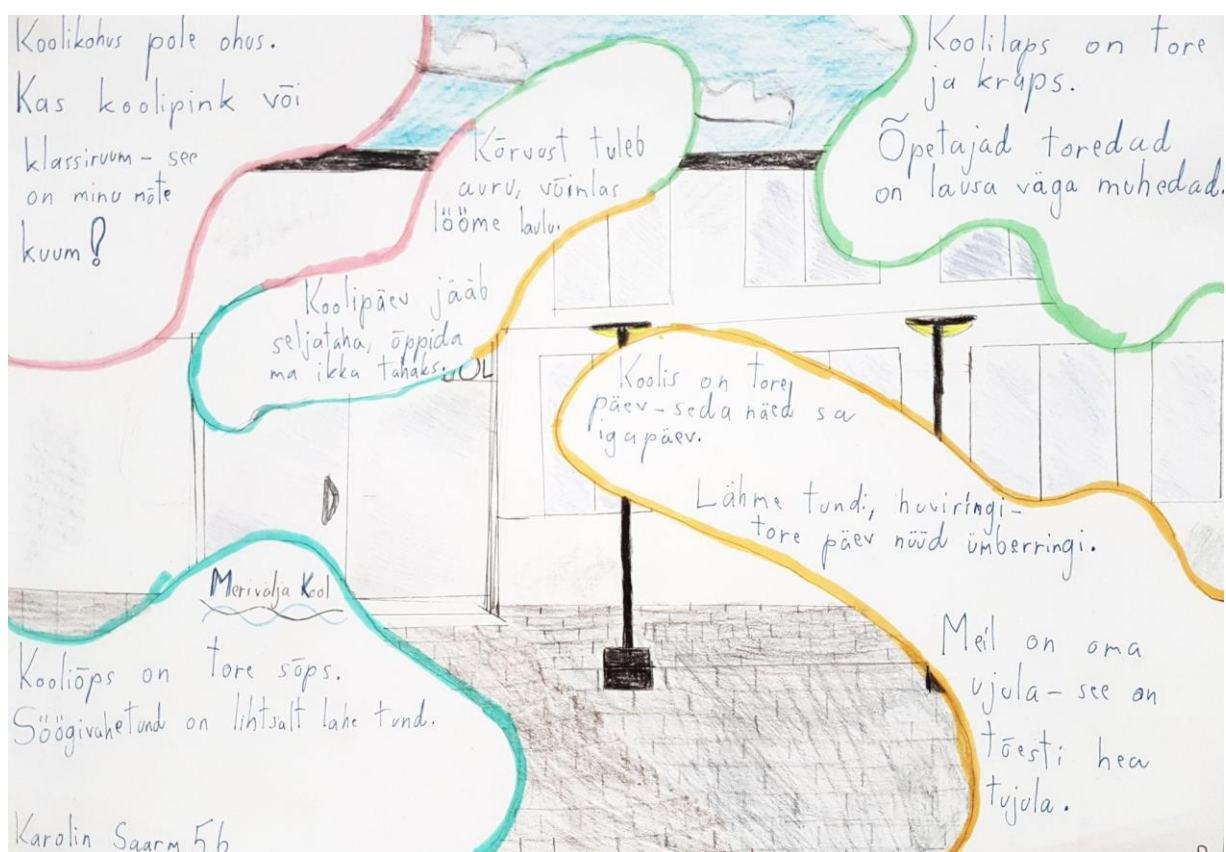 Koolikohus pole ohus.
Kas koolipink või
klassiruum – see
on minu mõte
kuum!
Kõrvust tuleb
auru, võimlas
lööme laulu.
Koolilaps on tore
ja kräps.
Õpetajad toredad
on lausa väga muhedad.
Koolipäev jääb
seljataha, õppida
ma ikka tahaks.
OL
Koolis on tore
päev – seda näed sa
igapäev.
Lähme tundi, huviringi –
tore päev nüüd ümberringi.
Merivälja Kool
Kooliõps on tore sõps.
Söögivahetund on lihtsalt lahe tund.
Meil on oma
ujula – see on
tõesti hea
tujula.
Karolin Saarm 5b